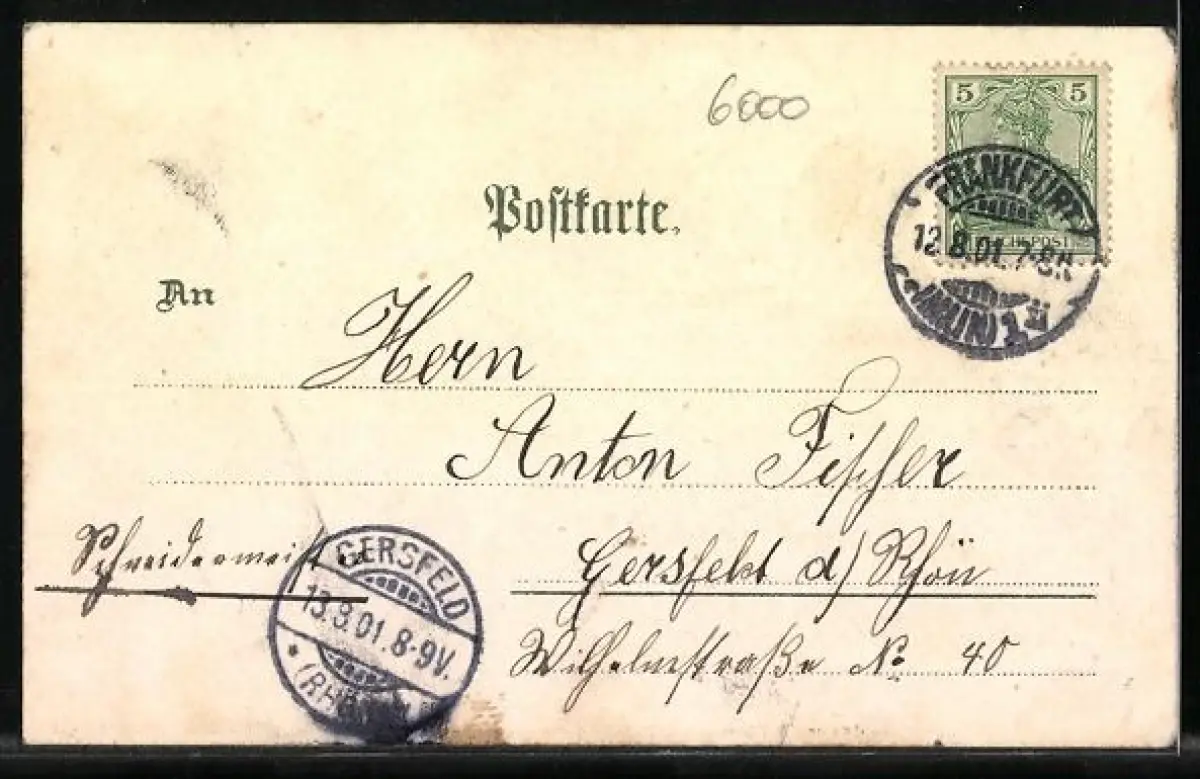 6000
5 5
REICHSPOST
FRANKFURT
12.8.01.7-8N.
(MAIN) 1
Postkarte.
An
Herrn
Anton Fischer
Schneidermeister
Gersfeld d/ Rhön
Wilhelmstraße No 40
GERSFELD
13.8.01.8-9V.
(RHÖN)